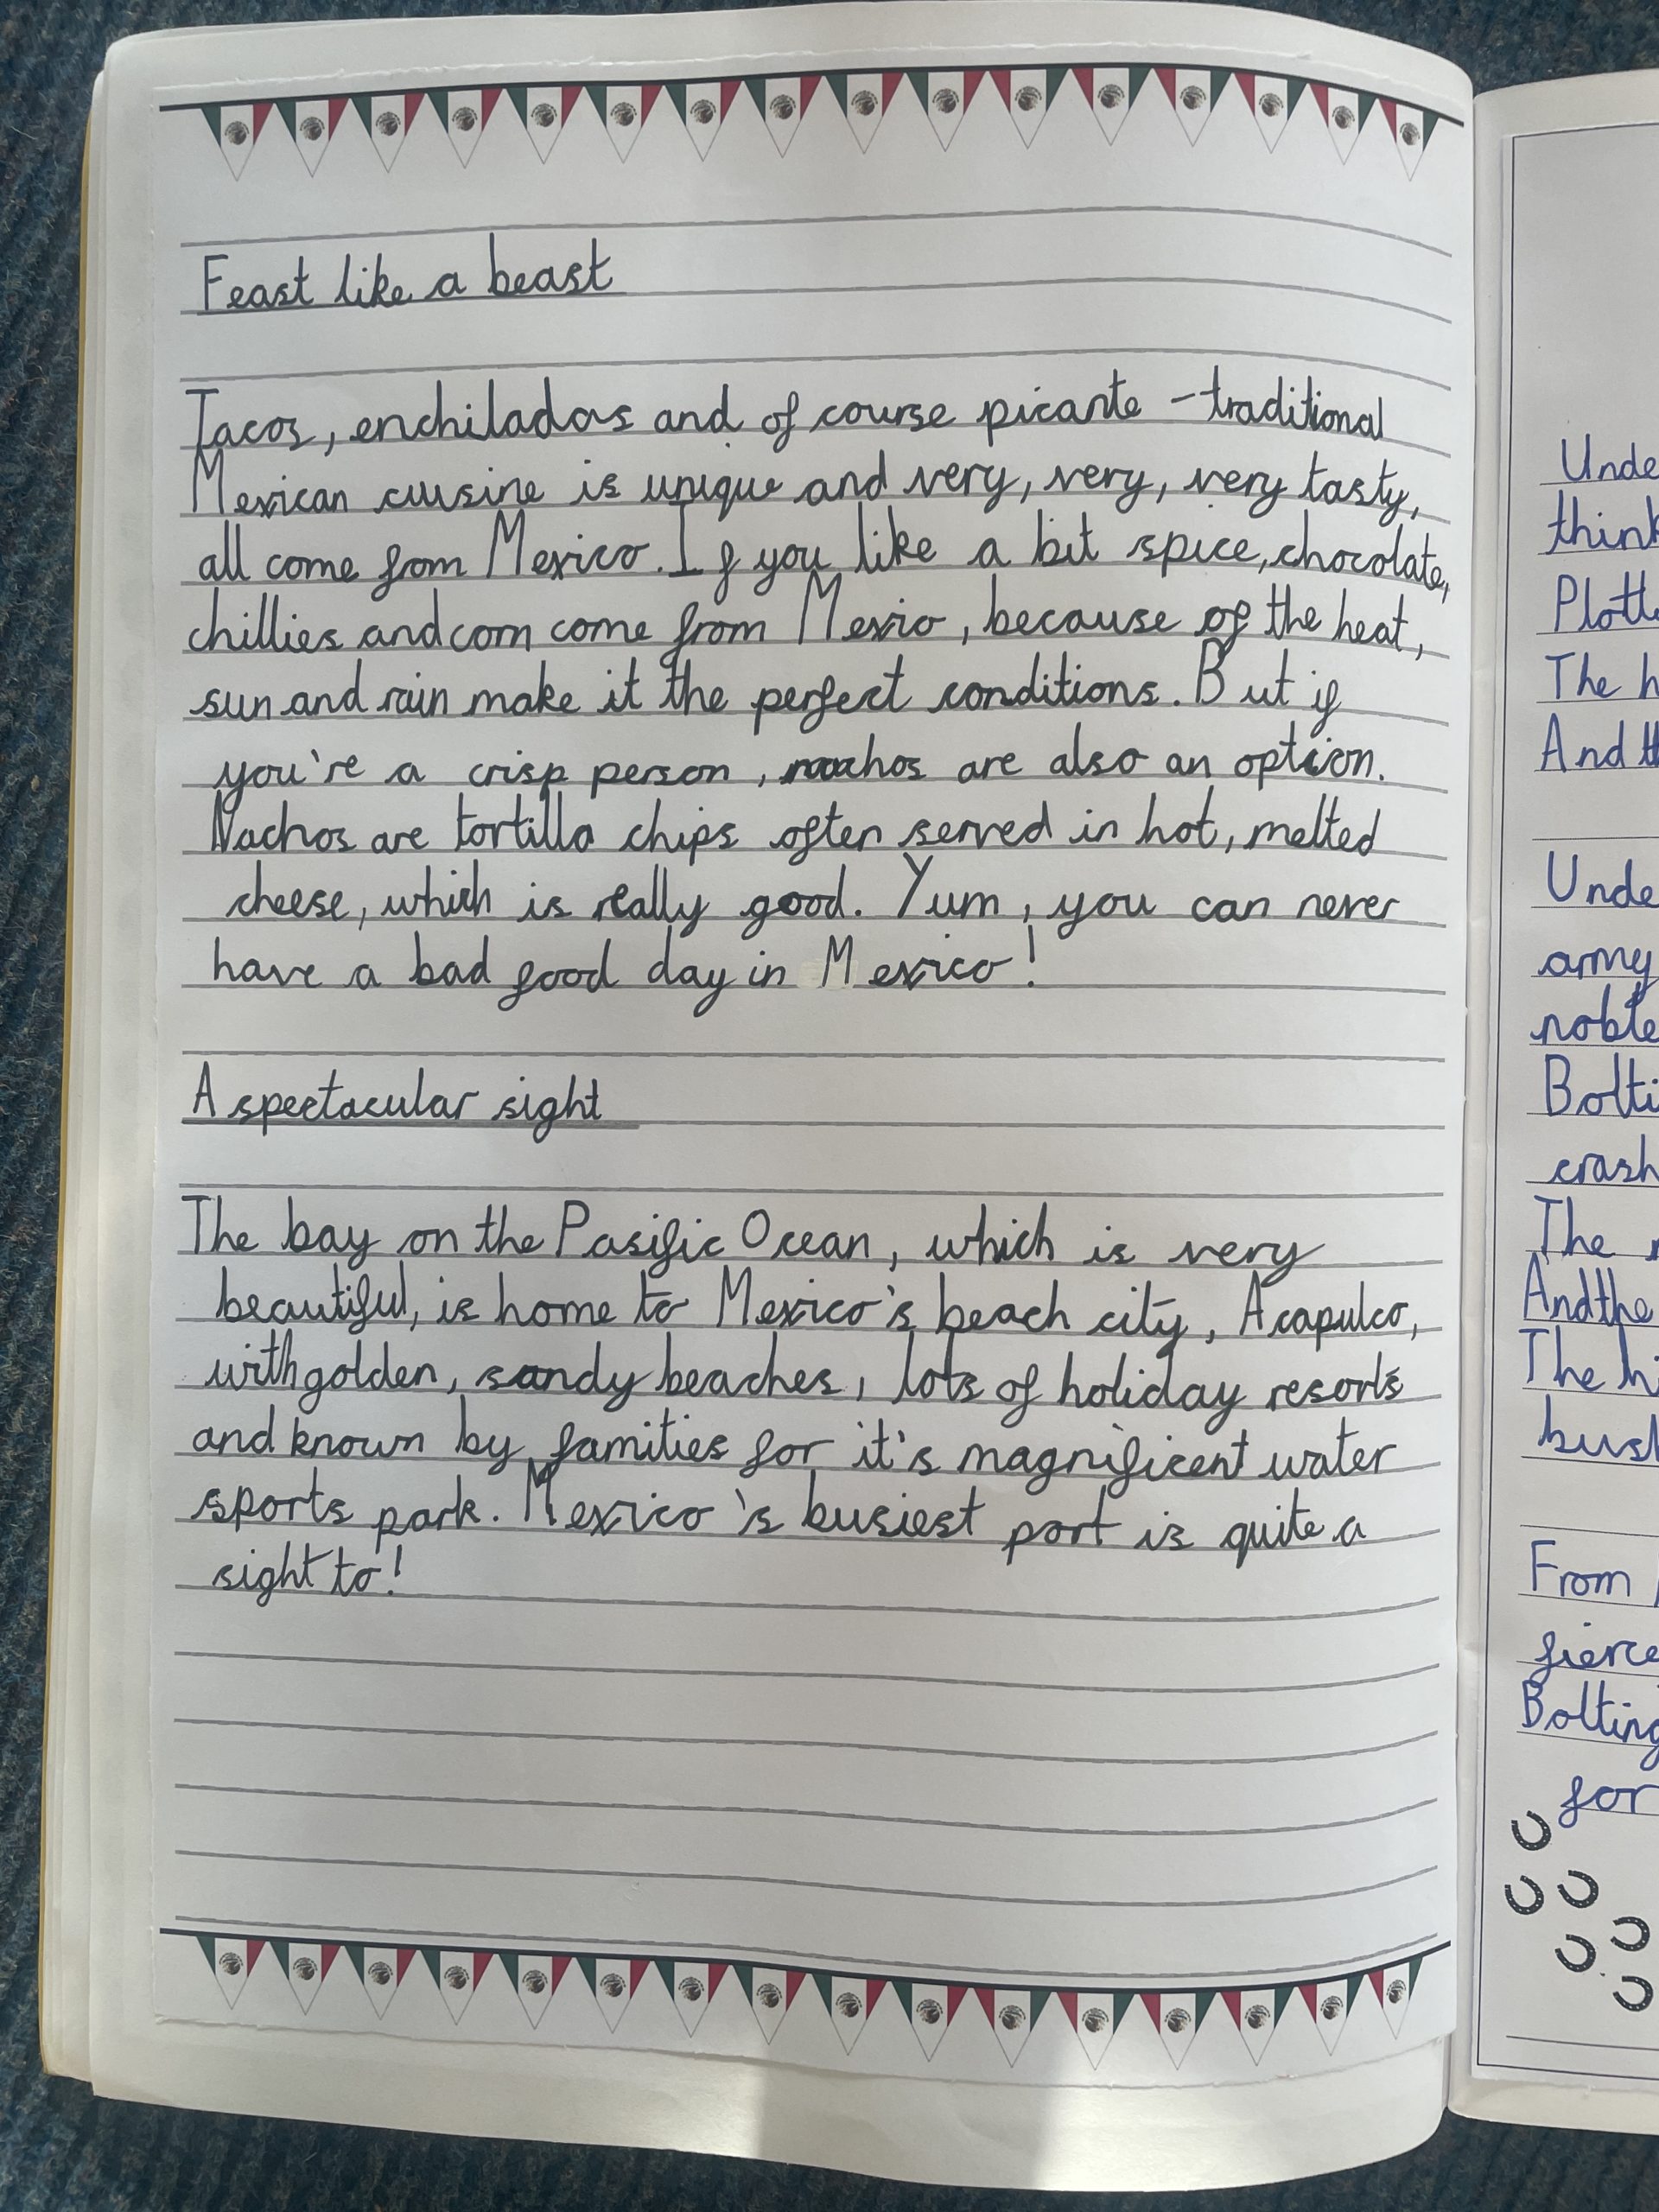 Feast like a beast
Tacos, enchiladas and of course picante - traditional
Mexican cuisine is unique and very, very, very tasty,
all come from Mexico. If you like a bit spice, chocolate,
chillies and corn come from Mexio, because of the heat,
sun and rain make it the perfect conditions. But if
you're a crisp person, nachos are also an option.
Nachos are tortilla chips often served in hot, melted
cheese, which is really good. Yum, you can never
have a bad food day in Mexico!
A spectacular sight
The bay on the Pasific Ocean, which is very
beautiful, is home to Mexico's beach city, Acapulco,
with golden, sandy beaches, lots of holiday resorts
and known by families for it's magnificent water
sports park. Mexico's busiest port is quite a
sight to!
Unde
think
Plott
The h
And th
Unde
army
noble
Bolti
crash
The
And the
The hi
bus
From
fierce
Bolting
for